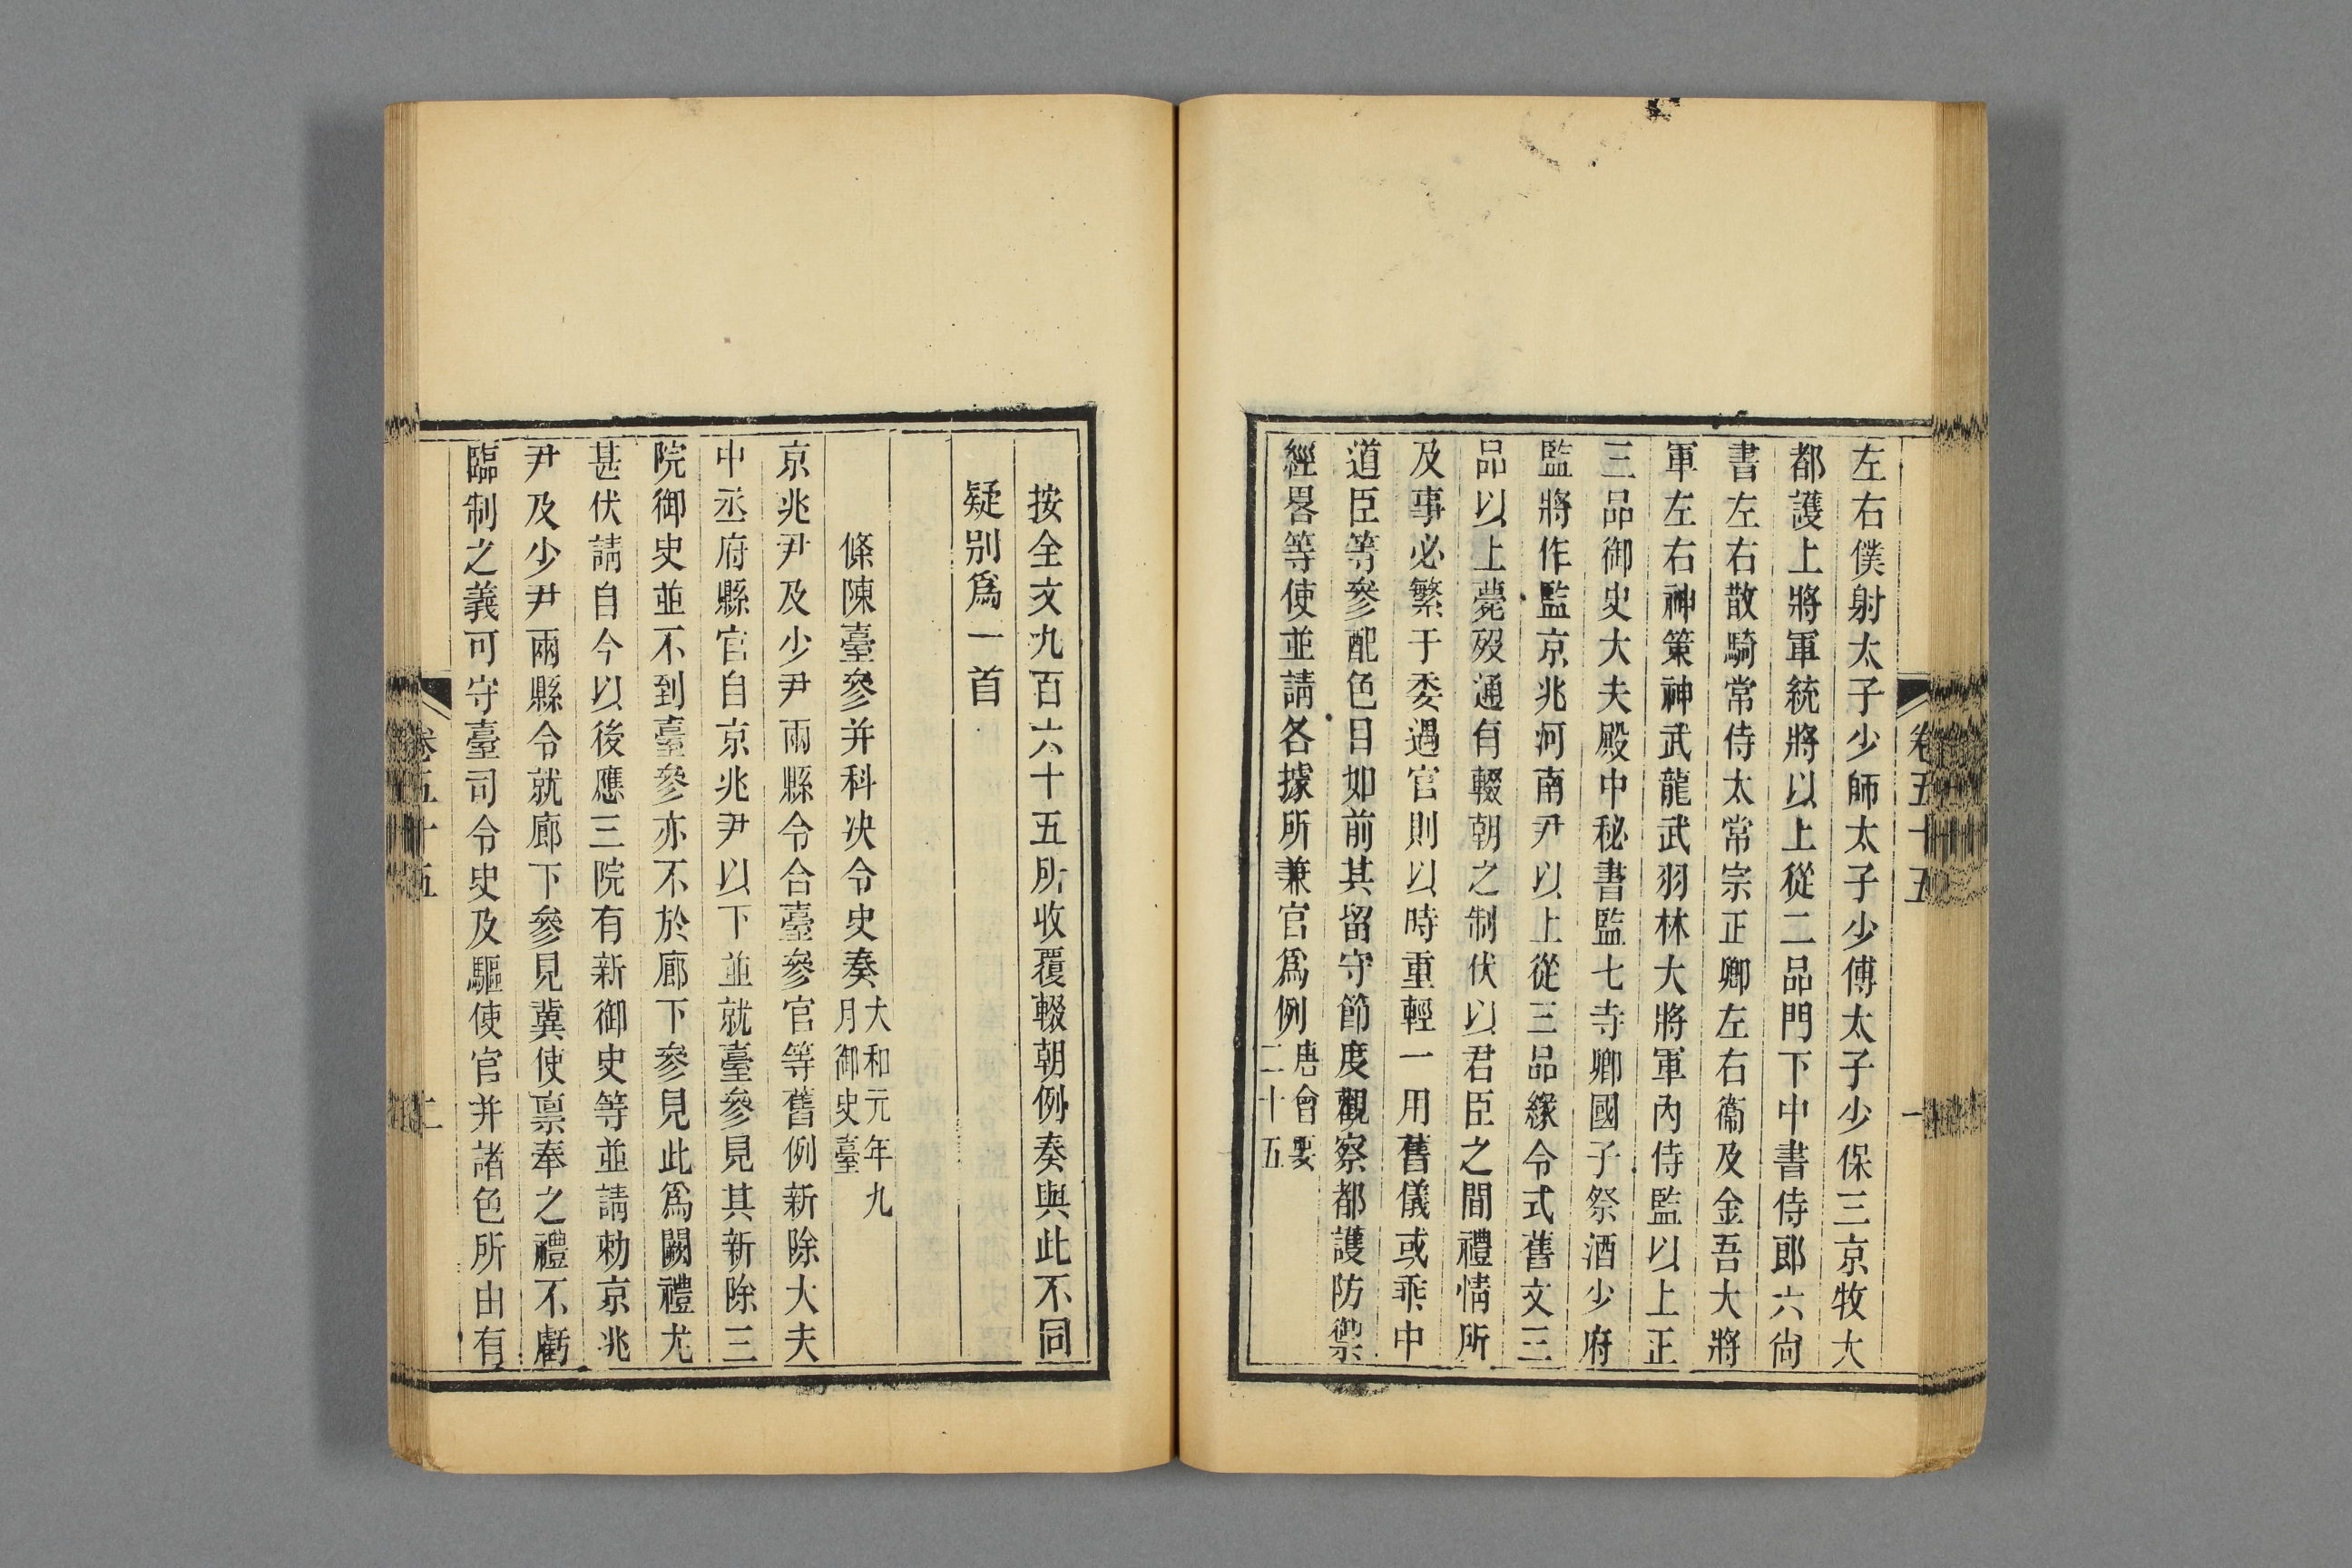 左右僕射太子少師太子少傅太子少保三京牧大
都護上將軍統將以上從二品門下中書侍郎六尙
書左右散騎常侍太常宗正卿左右衞及金吾大將
軍左右神策神武龍武羽林大將軍內侍監以上正
三品御史大夫殿中秘書監七寺卿國子祭酒少府
監將作監京兆河南尹以上從三品緣令式舊文三
品以上薨歿通有輟朝之制伏以君臣之間禮情所
及事必繁于委遇官則以時重輕一用舊儀或乖中
道臣等參配色目如前其留守節度觀察都護防禦
經畧等使並請各據所兼官爲例唐會要
二十五
卷五十五
一
按全文九百六十五所收覆輟朝例奏與此不同
疑别爲一首
條陳臺參并科決令史奏大和元年九
月御史臺
京兆尹及少尹兩縣令合臺參官等舊例新除大夫
中丞府縣官自京兆尹以下並就臺參見其新除三
院御史並不到臺參亦不於廊下參見此爲闕禮尤
甚伏請自今以後應三院有新御史等並請勑京兆
尹及少尹兩縣令就廊下參見冀使稟奉之禮不虧
臨制之義可守臺司令史及驅使官并諸色所由有
卷五十五
二